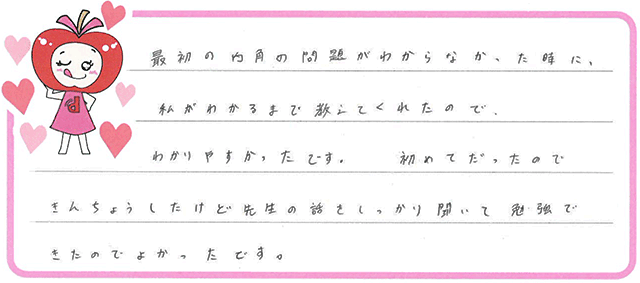 最初の内角の問題がわからなかった時に、
私がわかるまで教えてくれたので、
わかりやすかったです。 初めてだったので
きんちょうしたけど先生の話をしっかり聞いて勉強で
きたのでよかったです。